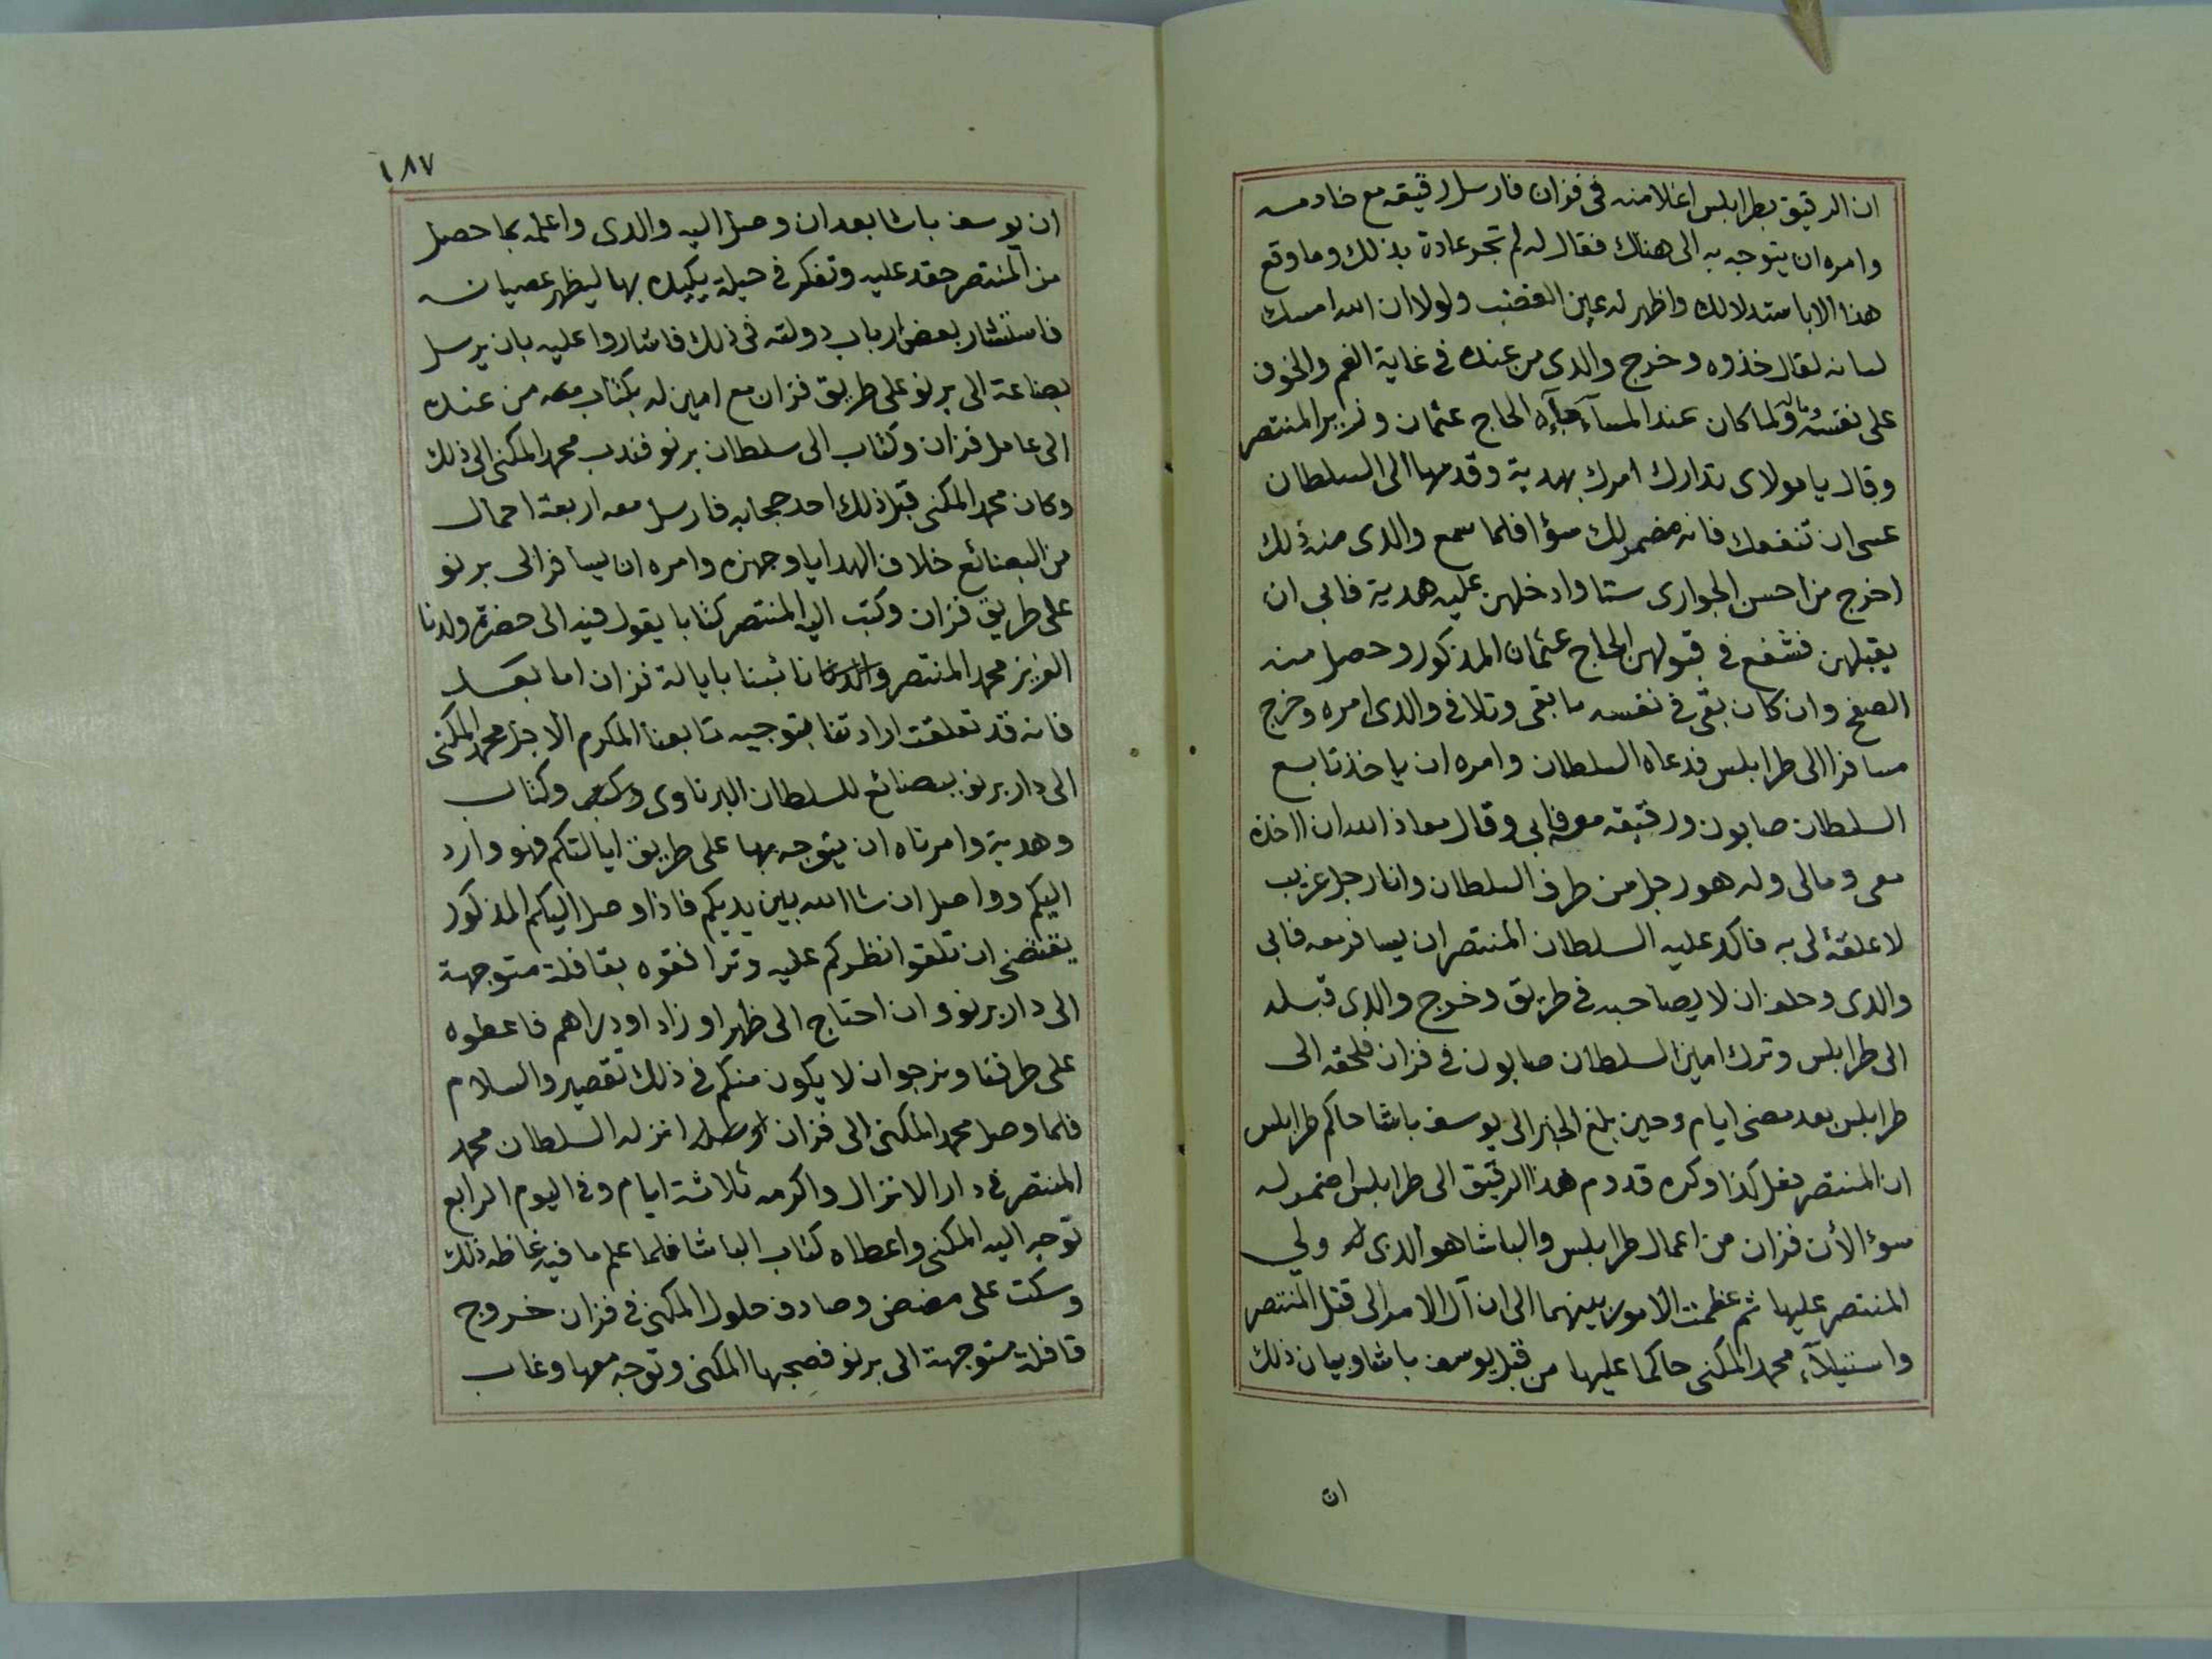 ان الرقيق بطرابلس اغلا منه فى فزان فارسل رقيقه مع خادمه
وامره ان يتوجه به الى هناك فقال له لم تجر عادة بذلك وما وقع
هذا الا باستدلالك واظهر له عين الغضب ولولا ان الله امسك
لسانه لقال خذوه وخرج والدى من عنده فى غاية الغم والخوف
على نفسه وماله ولما كان عند المسآء جآءه الحاج عثمان وزير المنتصر
وقال يا مولاى تدارك امرك بهدية وقدمها الى السلطان
عسى ان تنفعك فانه مضمر لك سؤا فلما سمع والدى منه ذلك
اخرج من احسن الجوارى ستا وادخلهن عليه هدية فابى ان
يقبلهن فشفع فى قبولهن الحاج عثمان المذكور وحصل منه
الصفح وان كان بقى فى نفسه ما بقى وتلافى والدى امره وخرج
مسافرا الى طرابلس فدعاه السلطان وامره ان ياخذ تابع
السلطان صابون ورقيقه معه فابى وقال معاذ الله ان ااخذه
معى ومالى وله هو رجل من طرف السلطان وانا رجل غريب
لا علقة لى به فاكد عليه السلطان المنتصر ان يسافر معه فابى
والدى وحلف ان لا يصاحبه فى طريق وخرج والدى قبله
الى طرابلس وترك امين السلطان صابون فى فزان فلحقه الى
طرابلس بعد مضى ايام وحين بلغ الخبر الى يوسف باشا حاكم طرابلس
ان المنتصر فعل كذا وكره قدوم هذا الرقيق الى طرابلس اضمر له
سوءا لأن فزان من اعمال طرابلس والباشا هو الذى ولى
المنتصر عليها ثم عظمت الامور بينهما الى ان آل الامر الى قتل المنتصر
واستيلآء محمد المكنى حاكما عليها من قبل يوسف باشا وبيان ذلك
ان
١٨٧
ان يوسف باشا بعد ان وصل اليه والدى واعلمه بما حصل
من المنتصر حقد عليه وتفكر فى حيلة يكيده بها ليظهر عصيانه
فاستشار بعض ارباب دولته فى ذلك فاشاروا عليه بان يرسل
بضاعة الى برنو على طريق فزان مع امين له بكتاب معه من عنده
الى عامل فزان وكتاب الى سلطان برنو فندب محمد المكنى الى ذلك
وكان محمد المكنى قبل ذلك احد حجابه فارسل معه اربعة احمال
من البضائع خلاف الهدايا وجهزه وامره ان يسافر الى برنو
على طريق فزان وكتب اليه المنتصر كتابا يقول فيه الى حضرة ولدنا
العزيز محمد المنتصر نائبنا بايالة فزان اما بعد
فانه قد تعلقت ارادتنا بتوجيه تابعنا المكرم الاجل محمد المكنى
الى دار برنو ببضائع للسلطان البرناوى وكتاب
وهدية وامرناه ان يتوجه بها على طريق ايالتكم فهو وارد
اليكم وواصل ان شا الله بين يديكم فاذا وصل اليكم المذكور
يقتضى ان تلقوا نظركم عليه وترافقوه بقافلة متوجهة
الى دار برنو وان احتاج الى ظهر او زاد او دراهم فاعطوه
على طرفنا ونرجو ان لا يكون منكم فى ذلك تقصير والسلام
فلما وصل محمد المكنى الى فزان انزله السلطان محمد
المنتصر فى دار الانزال واكرمه ثلاثة ايام وفى اليوم الرابع
توجه اليه المكنى واعطاه كتاب الباشا فلما علم ما فيه غاظه ذلك
وسكت على مضض وصادف حلول المكنى فى فزان خروج
قافلة متوجهة الى برنو فصحبها المكنى وتوجه معها وغاب